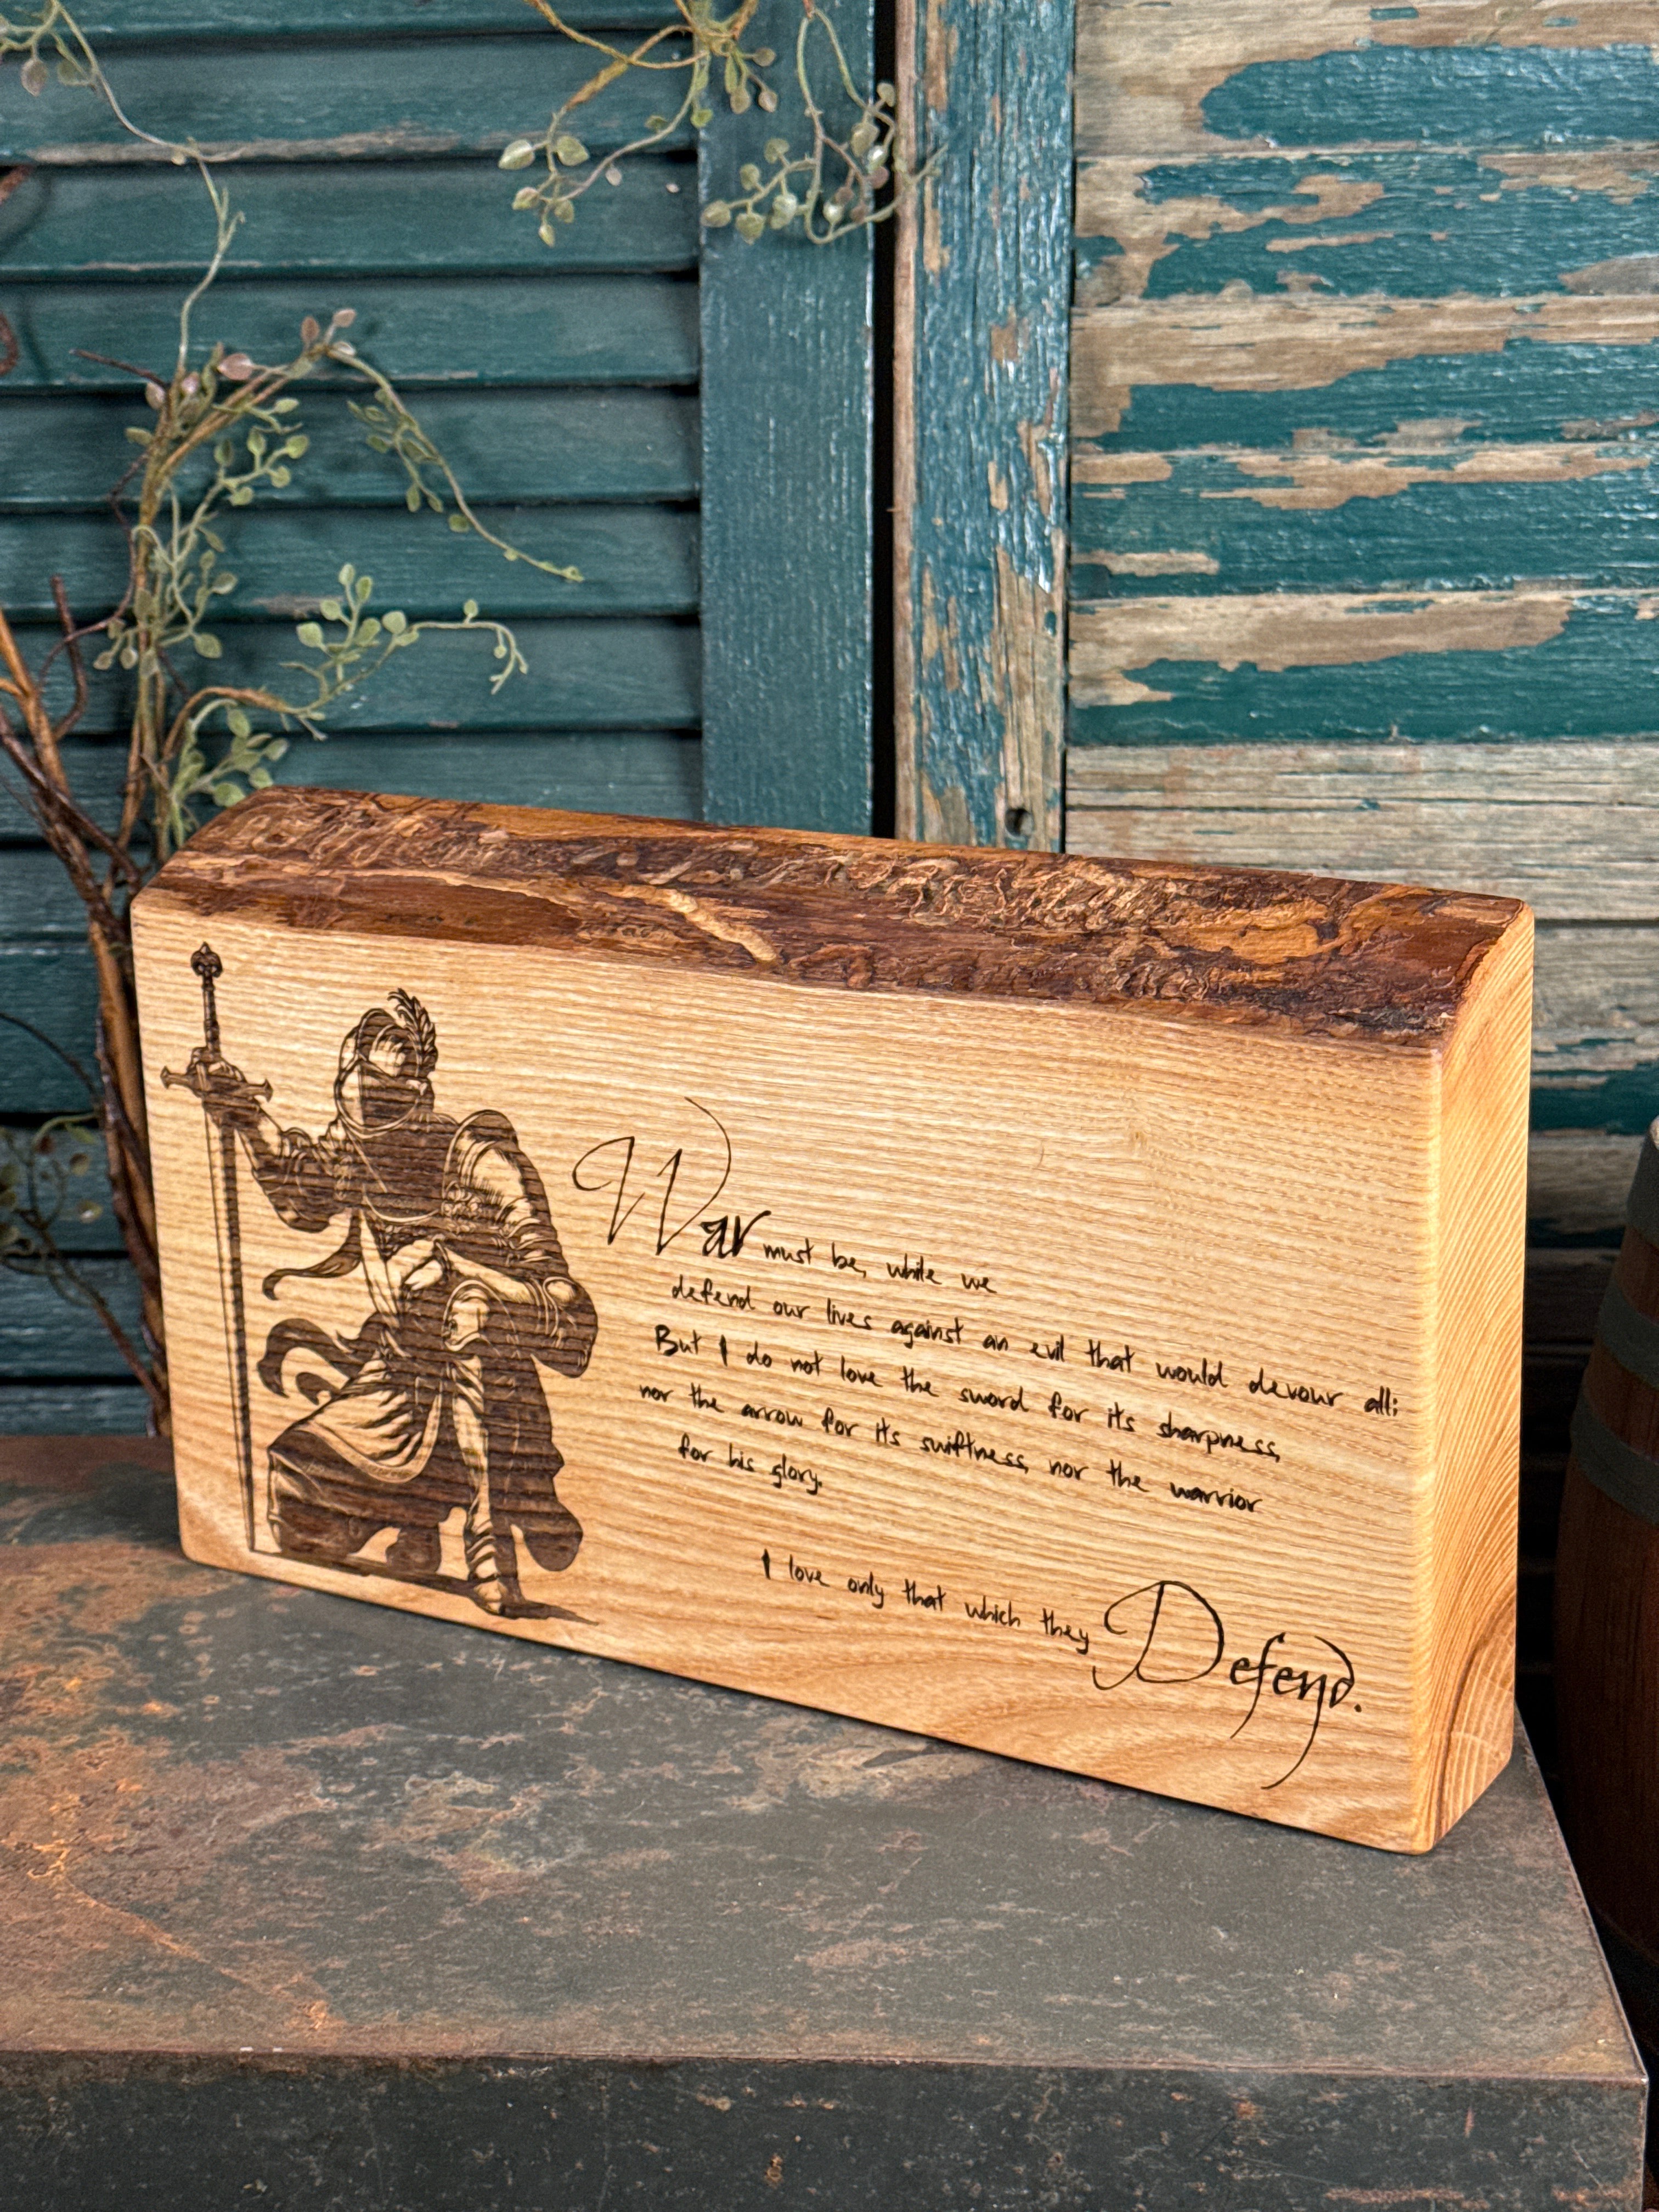 War must be, while we
defend our lives against an evil that would devour all;
But I do not love the sword for its sharpness,
nor the arrow for its swiftness, nor the warrior
for his glory.
I love only that which they Defend.